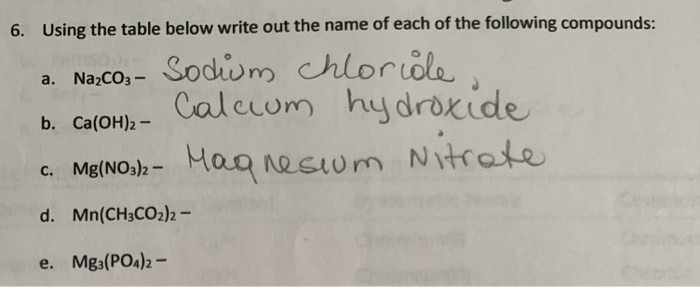 6. Using the table below write out the name of each of the following compounds:
a. Na₂CO₃ – Sodium chloride,
b. Ca(OH)₂ – Calcium hydroxide
c. Mg(NO₃)₂ – Magnesium Nitrate
d. Mn(CH₃CO₂)₂ –
e. Mg₃(PO₄)₂ –